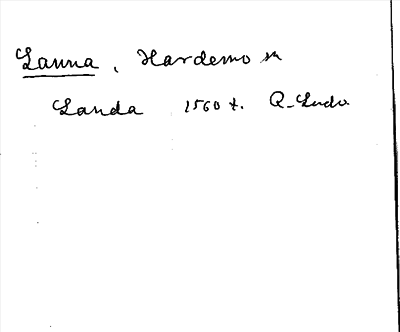 Lanna, Hardemo sn
Landa 1560 t. Q-Ludv.